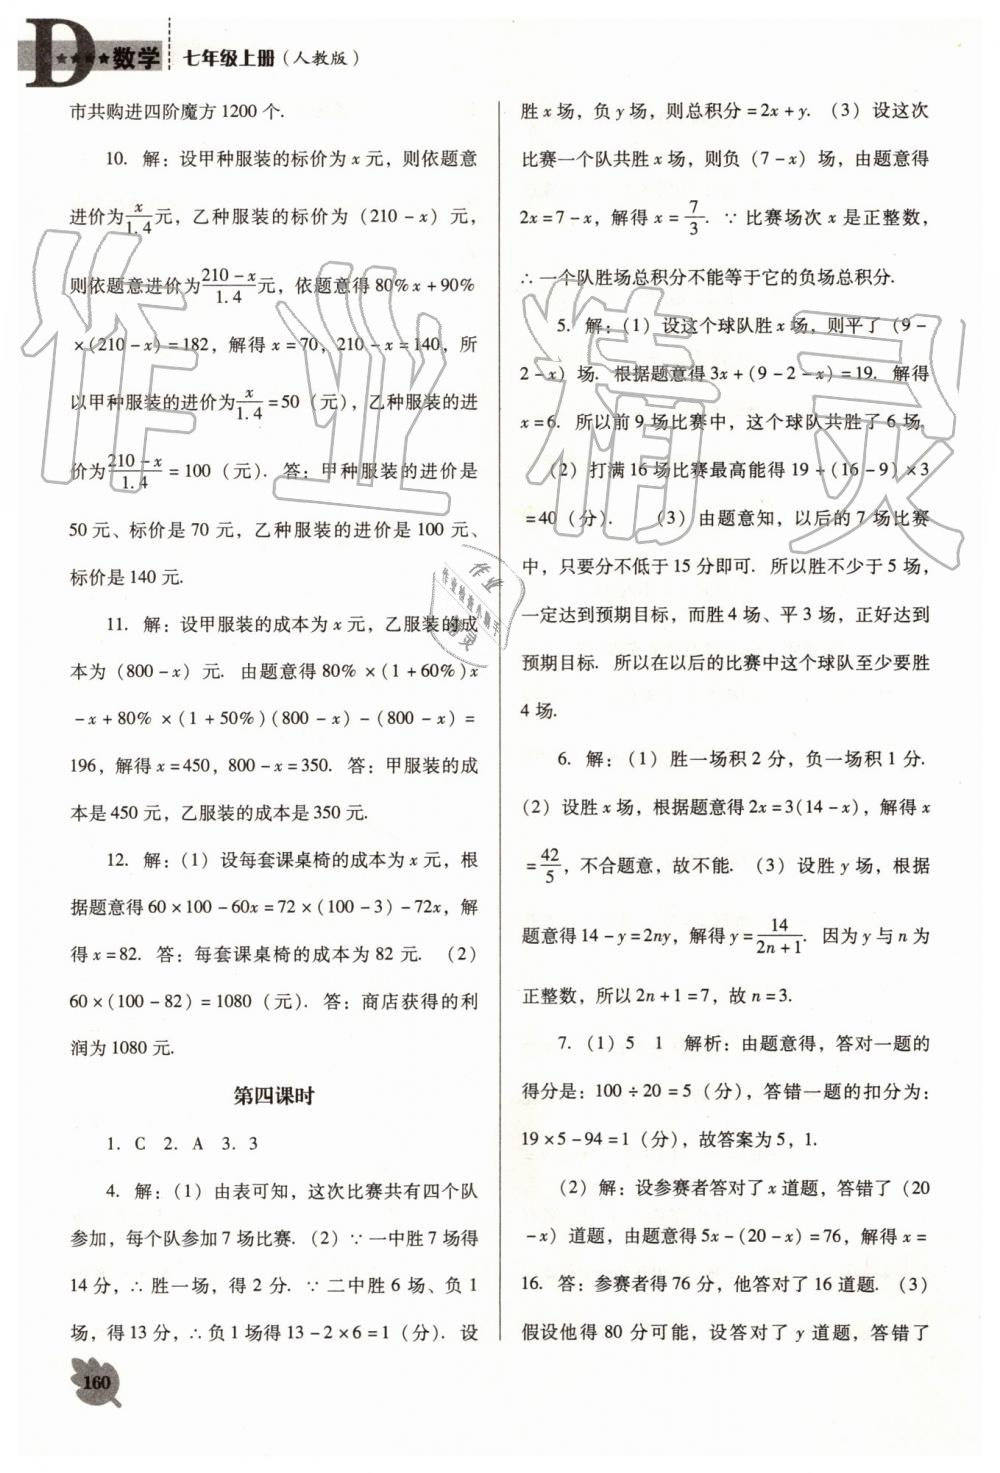 D ★★★★ 数学 七年级上册（人教版）
市共购进四阶魔方 1200 个.
10. 解：设甲种服装的标价为 x 元，则依题意
进价为x/1.4元，乙种服装的标价为（210－x）元，
则依题意进价为(210－x)/1.4元，依题意得 80％x＋90％
×(210－x)＝182，解得 x＝70，210－x＝140，所
以甲种服装的进价为x/1.4＝50（元），乙种服装的进
价为(210－x)/1.4＝100（元）. 答：甲种服装的进价是
50 元、标价是 70 元，乙种服装的进价是 100 元、
标价是 140 元.
11. 解：设甲服装的成本为 x 元，乙服装的成
本为（800－x）元. 由题意得 80％×(1＋60％)x
－x＋80％×(1＋50％)(800－x)－(800－x)＝
196，解得 x＝450，800－x＝350. 答：甲服装的成
本是 450 元，乙服装的成本是 350 元.
12. 解：（1）设每套课桌椅的成本为 x 元，根
据题意得 60×100－60x＝72×(100－3)－72x，解
得 x＝82. 答：每套课桌椅的成本为 82 元. （2）
60×(100－82)＝1080（元）. 答：商店获得的利
润为 1080 元.
第四课时
1. C 2. A 3. 3
4. 解：（1）由表可知，这次比赛共有四个队
参加，每个队参加 7 场比赛. （2）∵一中胜 7 场得
14 分，∴胜一场，得 2 分. ∵二中胜 6 场、负 1
场，得 13 分，∴负 1 场得 13－2×6＝1（分）. 设
胜 x 场，负 y 场，则总积分＝2x＋y. （3）设这次
比赛一个队共胜 x 场，则负（7－x）场，由题意得
2x＝7－x，解得 x＝7/3. ∵比赛场次 x 是正整数，
∴一个队胜场总积分不能等于它的负场总积分.
5. 解：（1）设这个球队胜 x 场，则平了（9－
2－x）场. 根据题意得 3x＋(9－2－x)＝19. 解得
x＝6. 所以前 9 场比赛中，这个球队共胜了 6 场.
（2）打满 16 场比赛最高能得 19＋(16－9)×3
＝40（分）. （3）由题意知，以后的 7 场比赛
中，只要分不低于 15 分即可. 所以胜不少于 5 场，
一定达到预期目标，而胜 4 场、平 3 场，正好达到
预期目标. 所以在以后的比赛中这个球队至少要胜
4 场.
6. 解：（1）胜一场积 2 分，负一场积 1 分.
（2）设胜 x 场，根据题意得 2x＝3(14－x)，解得 x
＝42/5，不合题意，故不能. （3）设胜 y 场，根据
题意得 14－y＝2ny，解得 y＝14/(2n＋1). 因为 y 与 n 为
正整数，所以 2n＋1＝7，故 n＝3.
7. （1）5 1 解析：由题意得，答对一题的
得分是：100÷20＝5（分），答错一题的扣分为：
19×5－94＝1（分），故答案为 5，1.
（2）解：设参赛者答对了 x 道题，答错了（20
－x）道题，由题意得 5x－(20－x)＝76，解得 x＝
16. 答：参赛者得 76 分，他答对了 16 道题. （3）
假设他得 80 分可能，设答对了 y 道题，答错了
160
作业精灵
作业
作业检查小助手
精灵